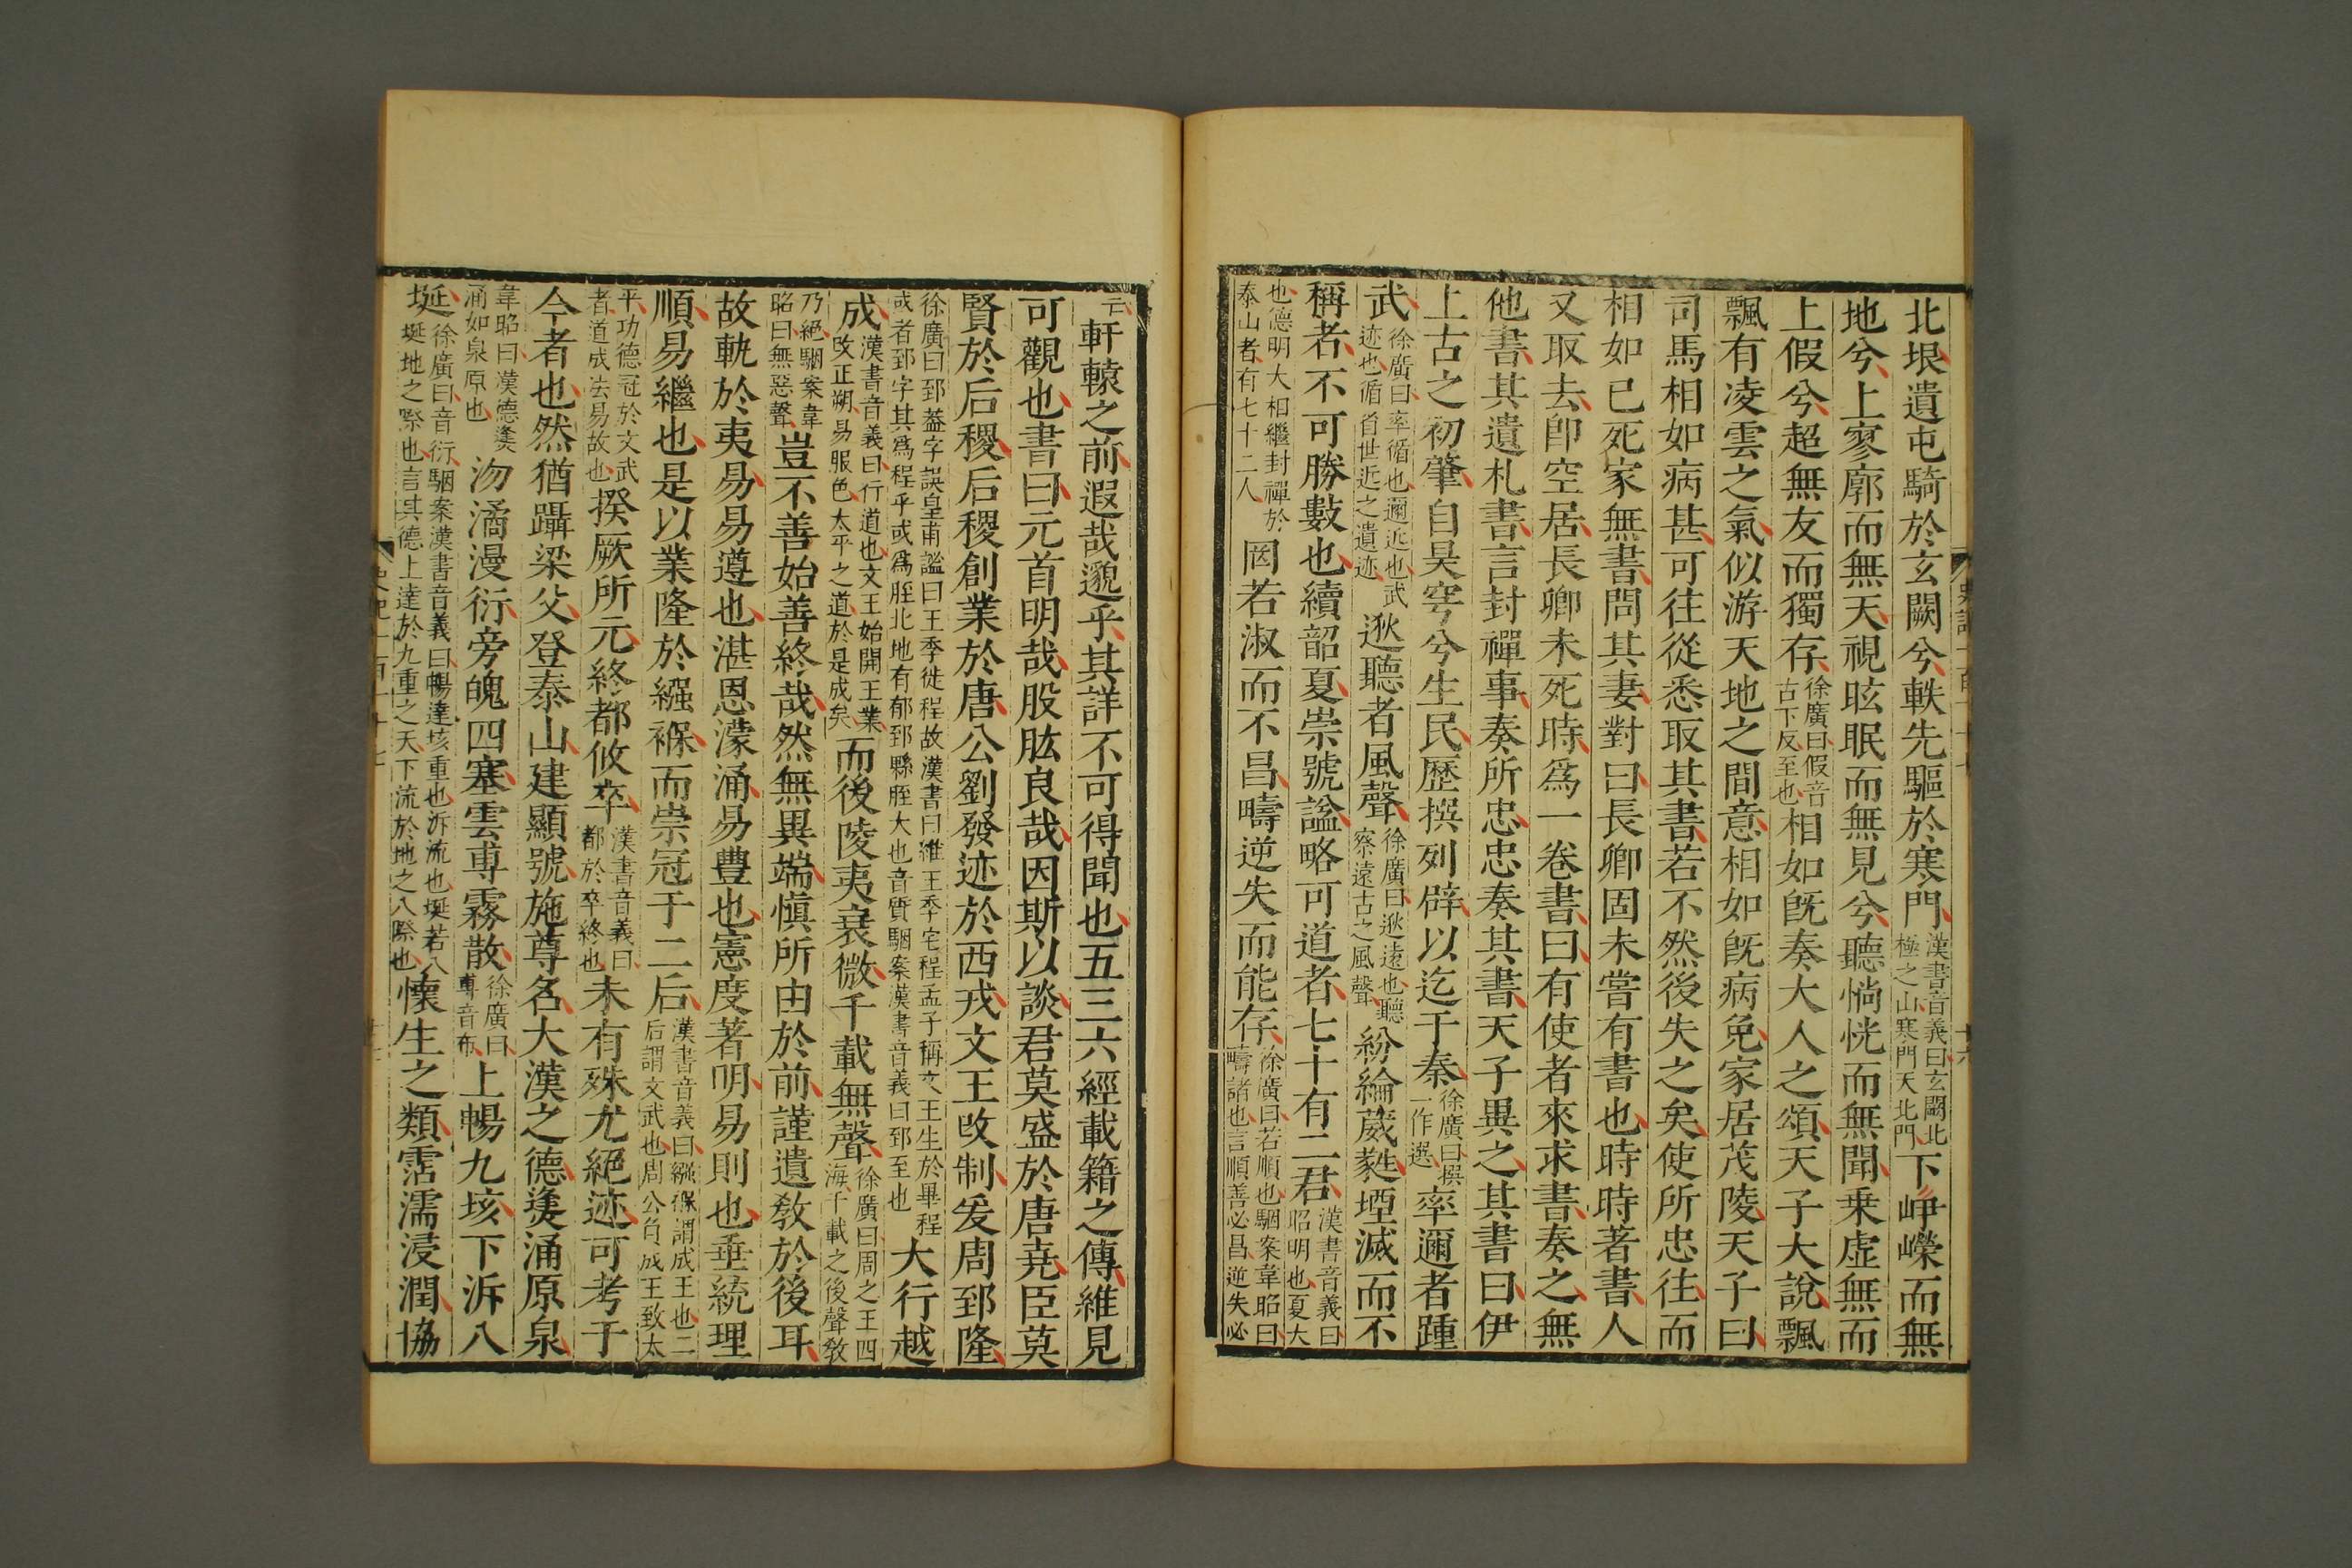 北垠遺屯騎於玄闕兮軼先驅於寒門漢書音義曰玄闕北極之山寒門天北門下崢嶸而無
地兮上寥廓而無天視眩眠而無見兮聽惝恍而無聞乗虚無而
上假兮超無友而獨存徐廣曰假音古下反至也相如旣奏大人之頌天子大說飄
飄有凌雲之氣似游天地之間意相如旣病免家居茂陵天子曰
司馬相如病甚可往從悉取其書若不然後失之矣使所忠往而
相如已死家無書問其妻對曰長卿固未嘗有書也時時著書人
又取去卽空居長卿未死時爲一卷書曰有使者來求書奏之無
他書其遺札書言封禪事奏所忠忠奏其書天子異之其書曰伊
上古之初肇自昊穹兮生民歷撰列辟以迄于秦徐廣曰撰一作選率邇者踵
武徐廣曰率循也邇近也武迹也循省世近之遺迹逖聽者風聲徐廣曰逖遠也聽察遠古之風聲紛綸葳蕤堙滅而不
稱者不可勝數也續韶夏崇號諡略可道者七十有二君漢書音義曰昭明也夏大
也德明大相繼封禪於泰山者有七十二人罔若淑而不昌疇逆失而能存徐廣曰若順也駰案韋昭曰疇諸也言順善必昌逆失必
亡軒轅之前遐哉邈乎其詳不可得聞也五三六經載籍之傳維見
可觀也書曰元首明哉股肱良哉因斯以談君莫盛於唐堯臣莫
賢於后稷后稷創業於唐公劉發迹於西戎文王改制爰周郅隆
徐廣曰郅葢字誤皇甫謐曰王季徙程故漢書曰維王季宅程孟子稱文王生於畢程或者郅字其爲程乎或爲胵北地有郁郅縣胵大也音質駰案漢書音義曰郅至也大行越
成漢書音義曰行道也文王始開王業改正朔易服色太平之道於是成矣而後陵夷衰微千載無聲徐廣曰周之王四海千載之後聲敎
乃絕駰案韋昭曰無惡聲豈不善始善終哉然無異端愼所由於前謹遺敎於後耳
故軌於夷易易遵也湛恩濛涌易豊也憲度著明易則也垂統理
順易繼也是以業隆於繦褓而崇冠于二后漢書音義曰繦褓謂成王也二后謂文武也周公負成王致太
平功德冠於文武者道成法易故也揆厥所元終都攸卒漢書音義曰都於卒終也未有殊尤絕迹可考于
今者也然猶躡梁父登泰山建顯號施尊名大漢之德㷭涌原泉
韋昭曰漢德㷭涌如泉原也沕潏漫衍旁魄四塞雲尃霧散徐廣曰尃音布上暢九垓下泝八
埏徐廣曰音衍駰案漢書音義曰暢達垓重也泝流也埏若八埏地之際也言其德上達於九重之天下流於地之八際也懷生之類霑濡浸潤協